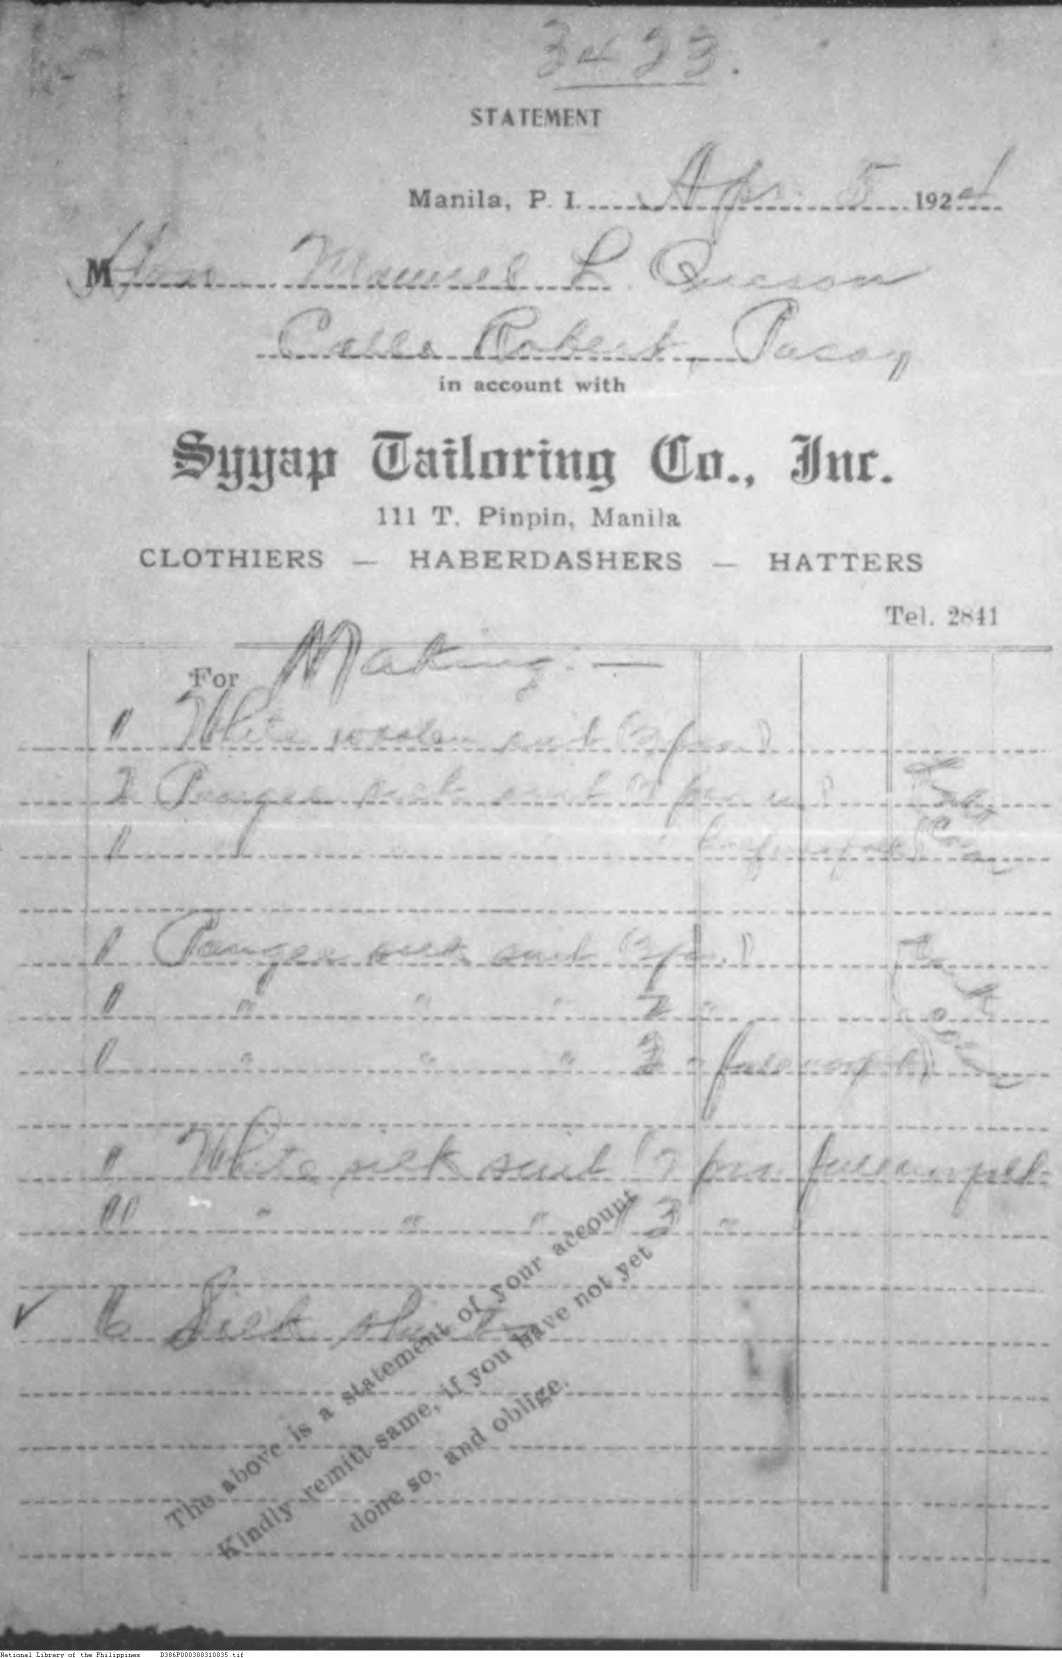 3423.
STATEMENT
Manila, P. I. Apr. 5 1924
M Hon Manuel L. Quezon
Calle Robert, Pasay
in account with
Syyap Tailoring Co., Inc.
111 T. Pinpin, Manila
CLOTHIERS — HABERDASHERS — HATTERS
Tel. 2841
For Making:—
" White woolen suit (3 pcs.)
2 Pongee silk suit (2
"
" Pongee silk suit (3 pcs.)
" " " " 2 "
" " " 3 "
" White silk suit (2 pcs.
" " " " 3 "
6 Silk shirts
The above is a statement of your account
Kindly remitt same, if you have not yet
done so, and oblige.
National Library of the Philippines D386P000388310035.tif